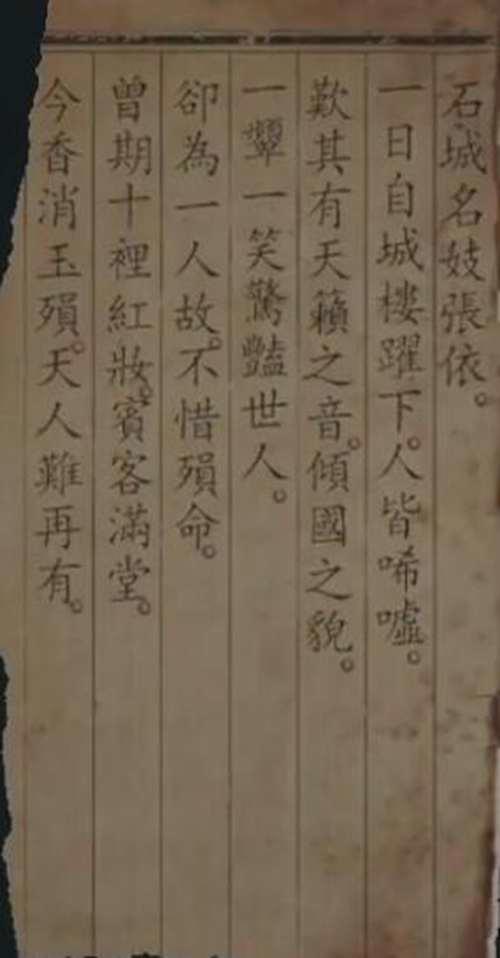 石城名妓張依。
一日自城樓躍下。人皆唏噓。
歎其有天籟之音。傾國之貌。
一顰一笑驚豔世人。
卻為一人故。不惜殞命。
曾期十裡紅妝。賓客滿堂。
今香消玉殞。天人難再有。